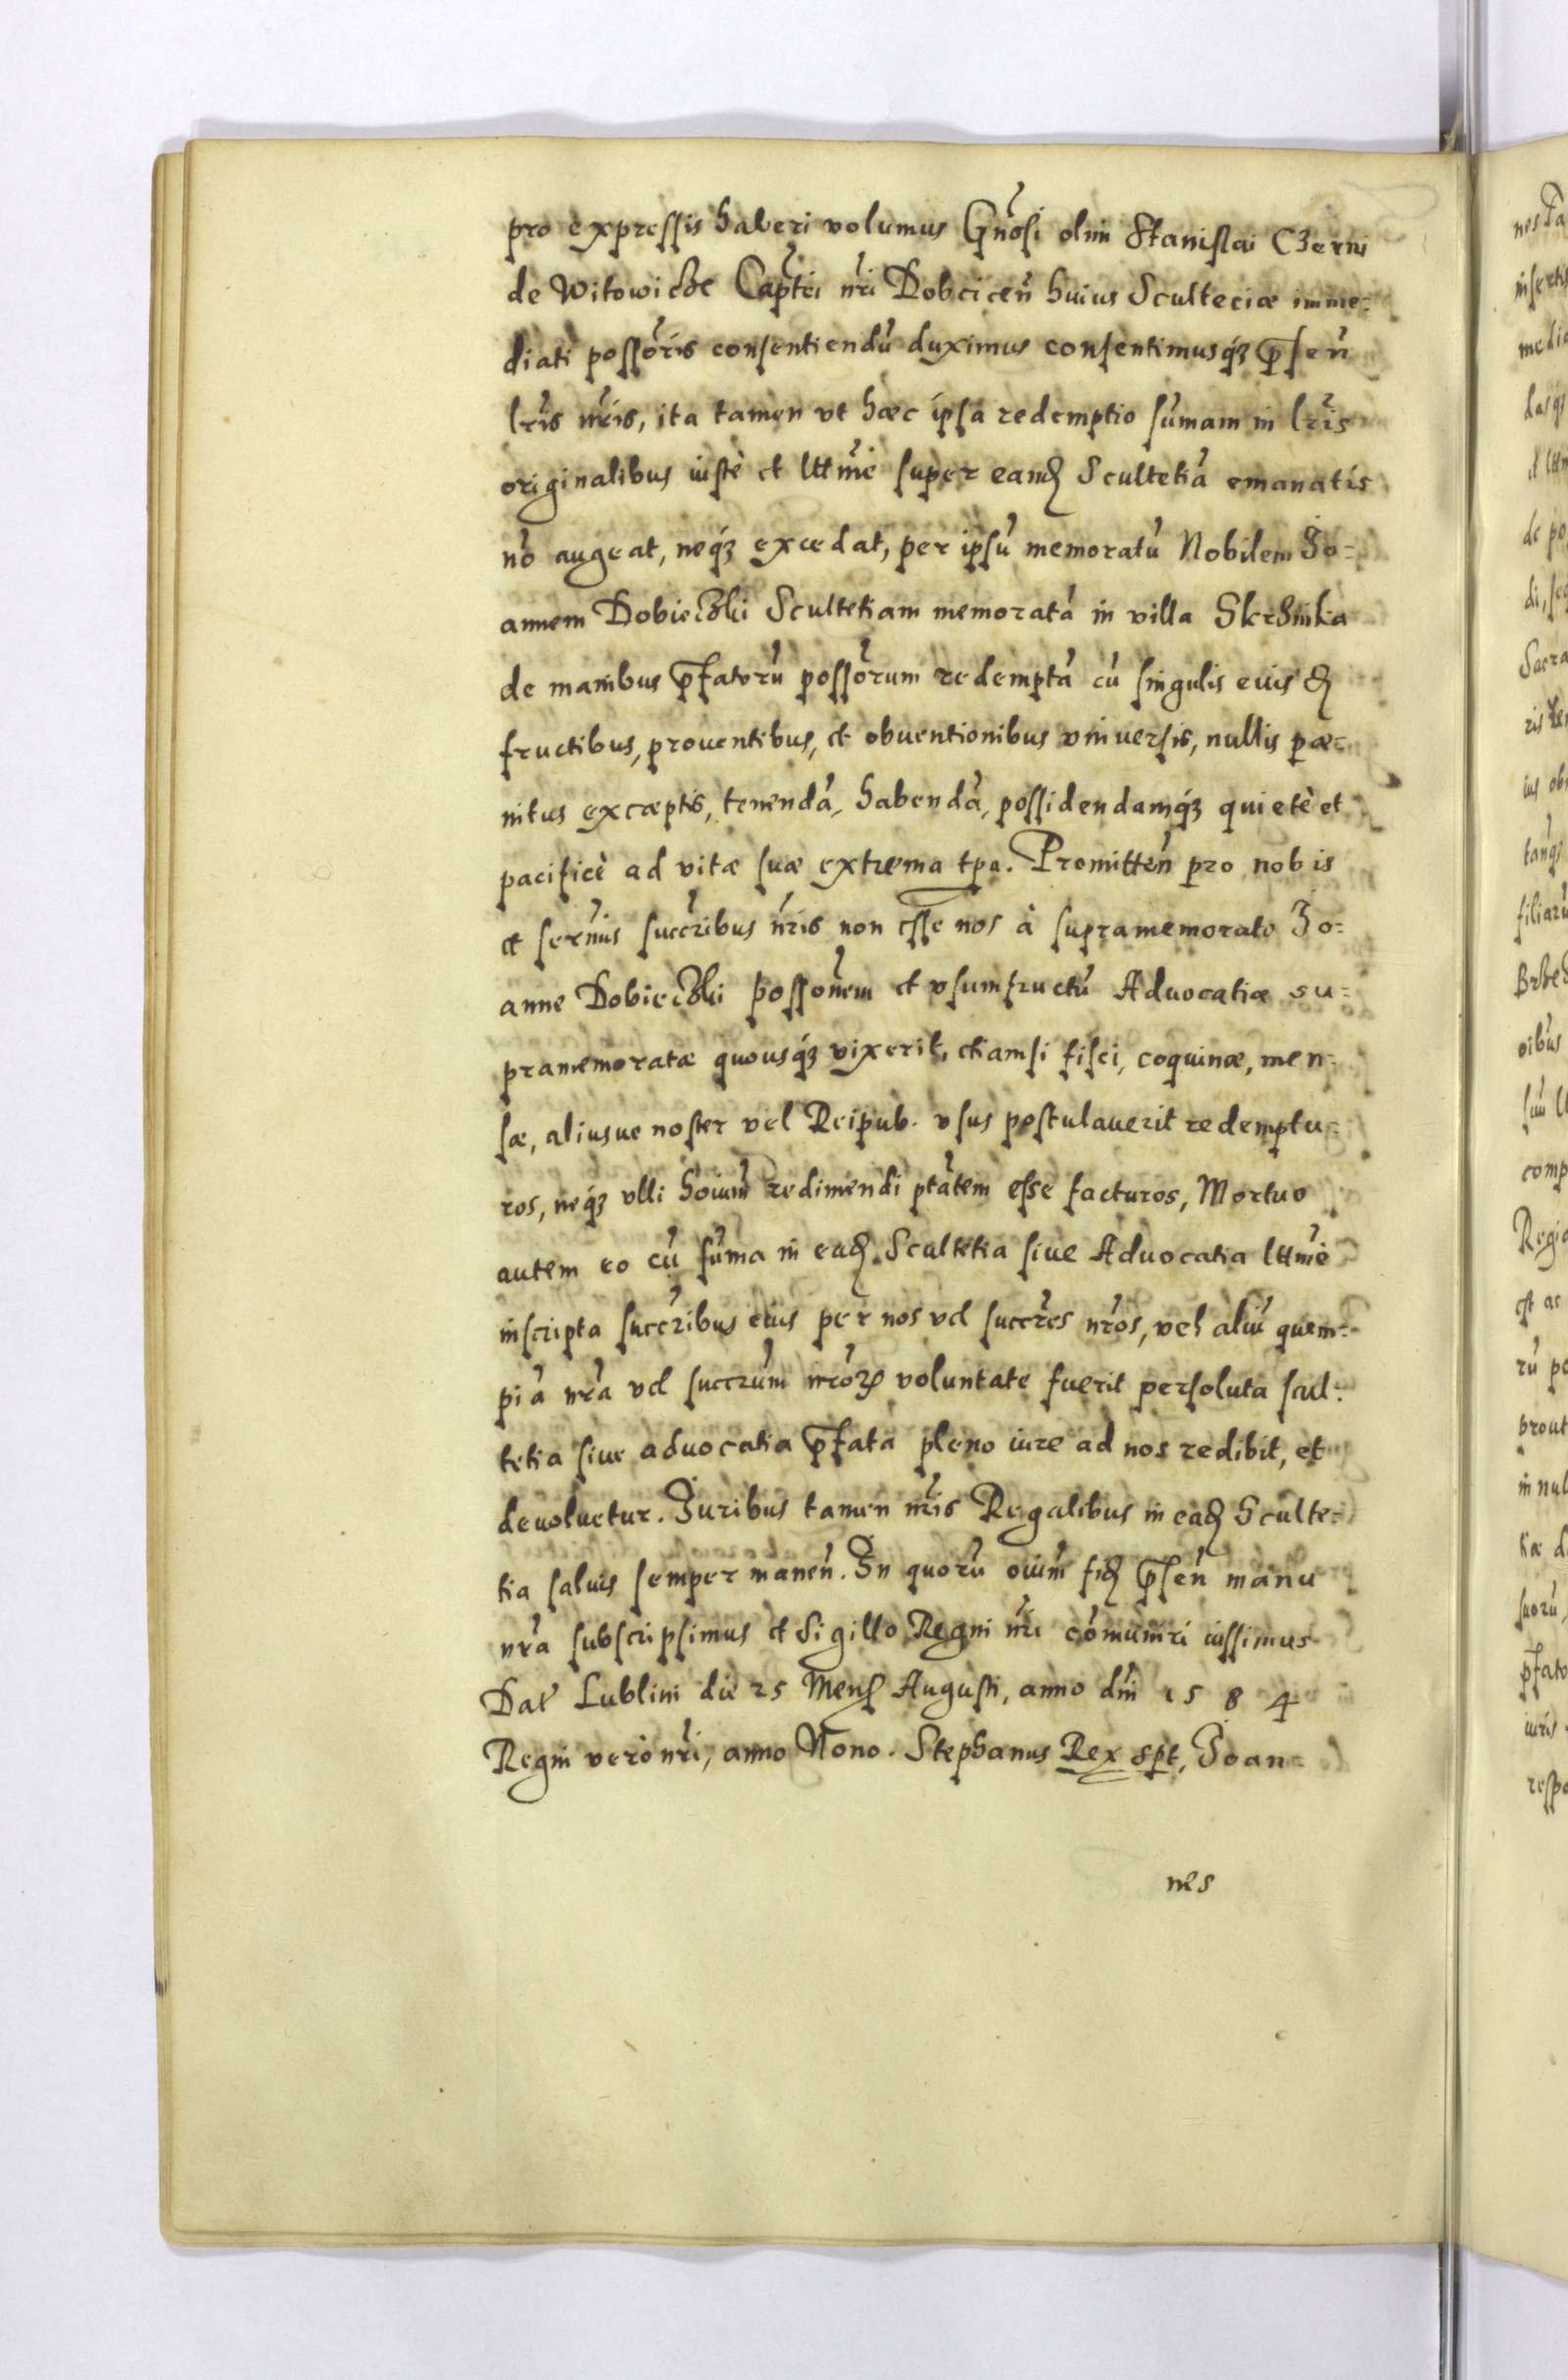 pro expressis haberi volumus Gnosi olim Stanislai Czerni
de Witowicze Captei nri Dobcicen̄ huius Sculteciæ imme=
diati possoris consentiendū duximus consentimusq́3 p̄sen̄
lris nris, ita tamen vt hæc ipsa redemptio sum̄am in lris
originalibus iustè et lttmè super eand Scultetiā emanatis
nō augeat, neq́3 excedat, per ipsū memoratū Nobilem Jo=
annem Dobieczki Scultetiam memoratā in villa Skrzinka
de manibus p̄fatorū possorum redemptā cū singulis eiusd
fructibus, prouentibus, et obuentionibus vniuersis, nullis pæ=
nitus exceptis, tenendā, habendā, possidendamq́3 quietè et
pacificè ad vitæ suæ extrema tpa. Promitten̄ pro nobis
et sernis succribus nris non esse nos à supramemorato Jo=
anne Dobieczki possonem et vsumfructū Aduocatiæ su=
pramemoratæ quousq́3 vixerit, etiamsi fisci, coquinæ, men=
sæ, aliusue noster vel Reipub. vsus postulauerit redemptu=
ros, neq́3 vlli hoium redimendi ptātem esse facturos, Mortuo
autem eo cū sum̄a in ead Scultetia siue Aduocatia lttmè
inscripta succribus eius per nos vel succres nros, vel aliū quem=
piā nrā vel succrum nror3 voluntate fuerit persoluta scul=
tetia siue aduocatia p̄fata pleno iure ad nos redibit, et
deuoluetur. Juribus tamen nris Regalibus in ead Sculte=
tia saluis semper manen̄. In quorū oium fid p̄sen̄ manu
nrā subscripsimus et Sigillo Regni nri com̄uniri iussimus
Dat̄ Lublini die 25 Mens Augusti, anno dni 1584
Regni verò nri, anno Nono. Stephanus Rex spt, Joan=
nes